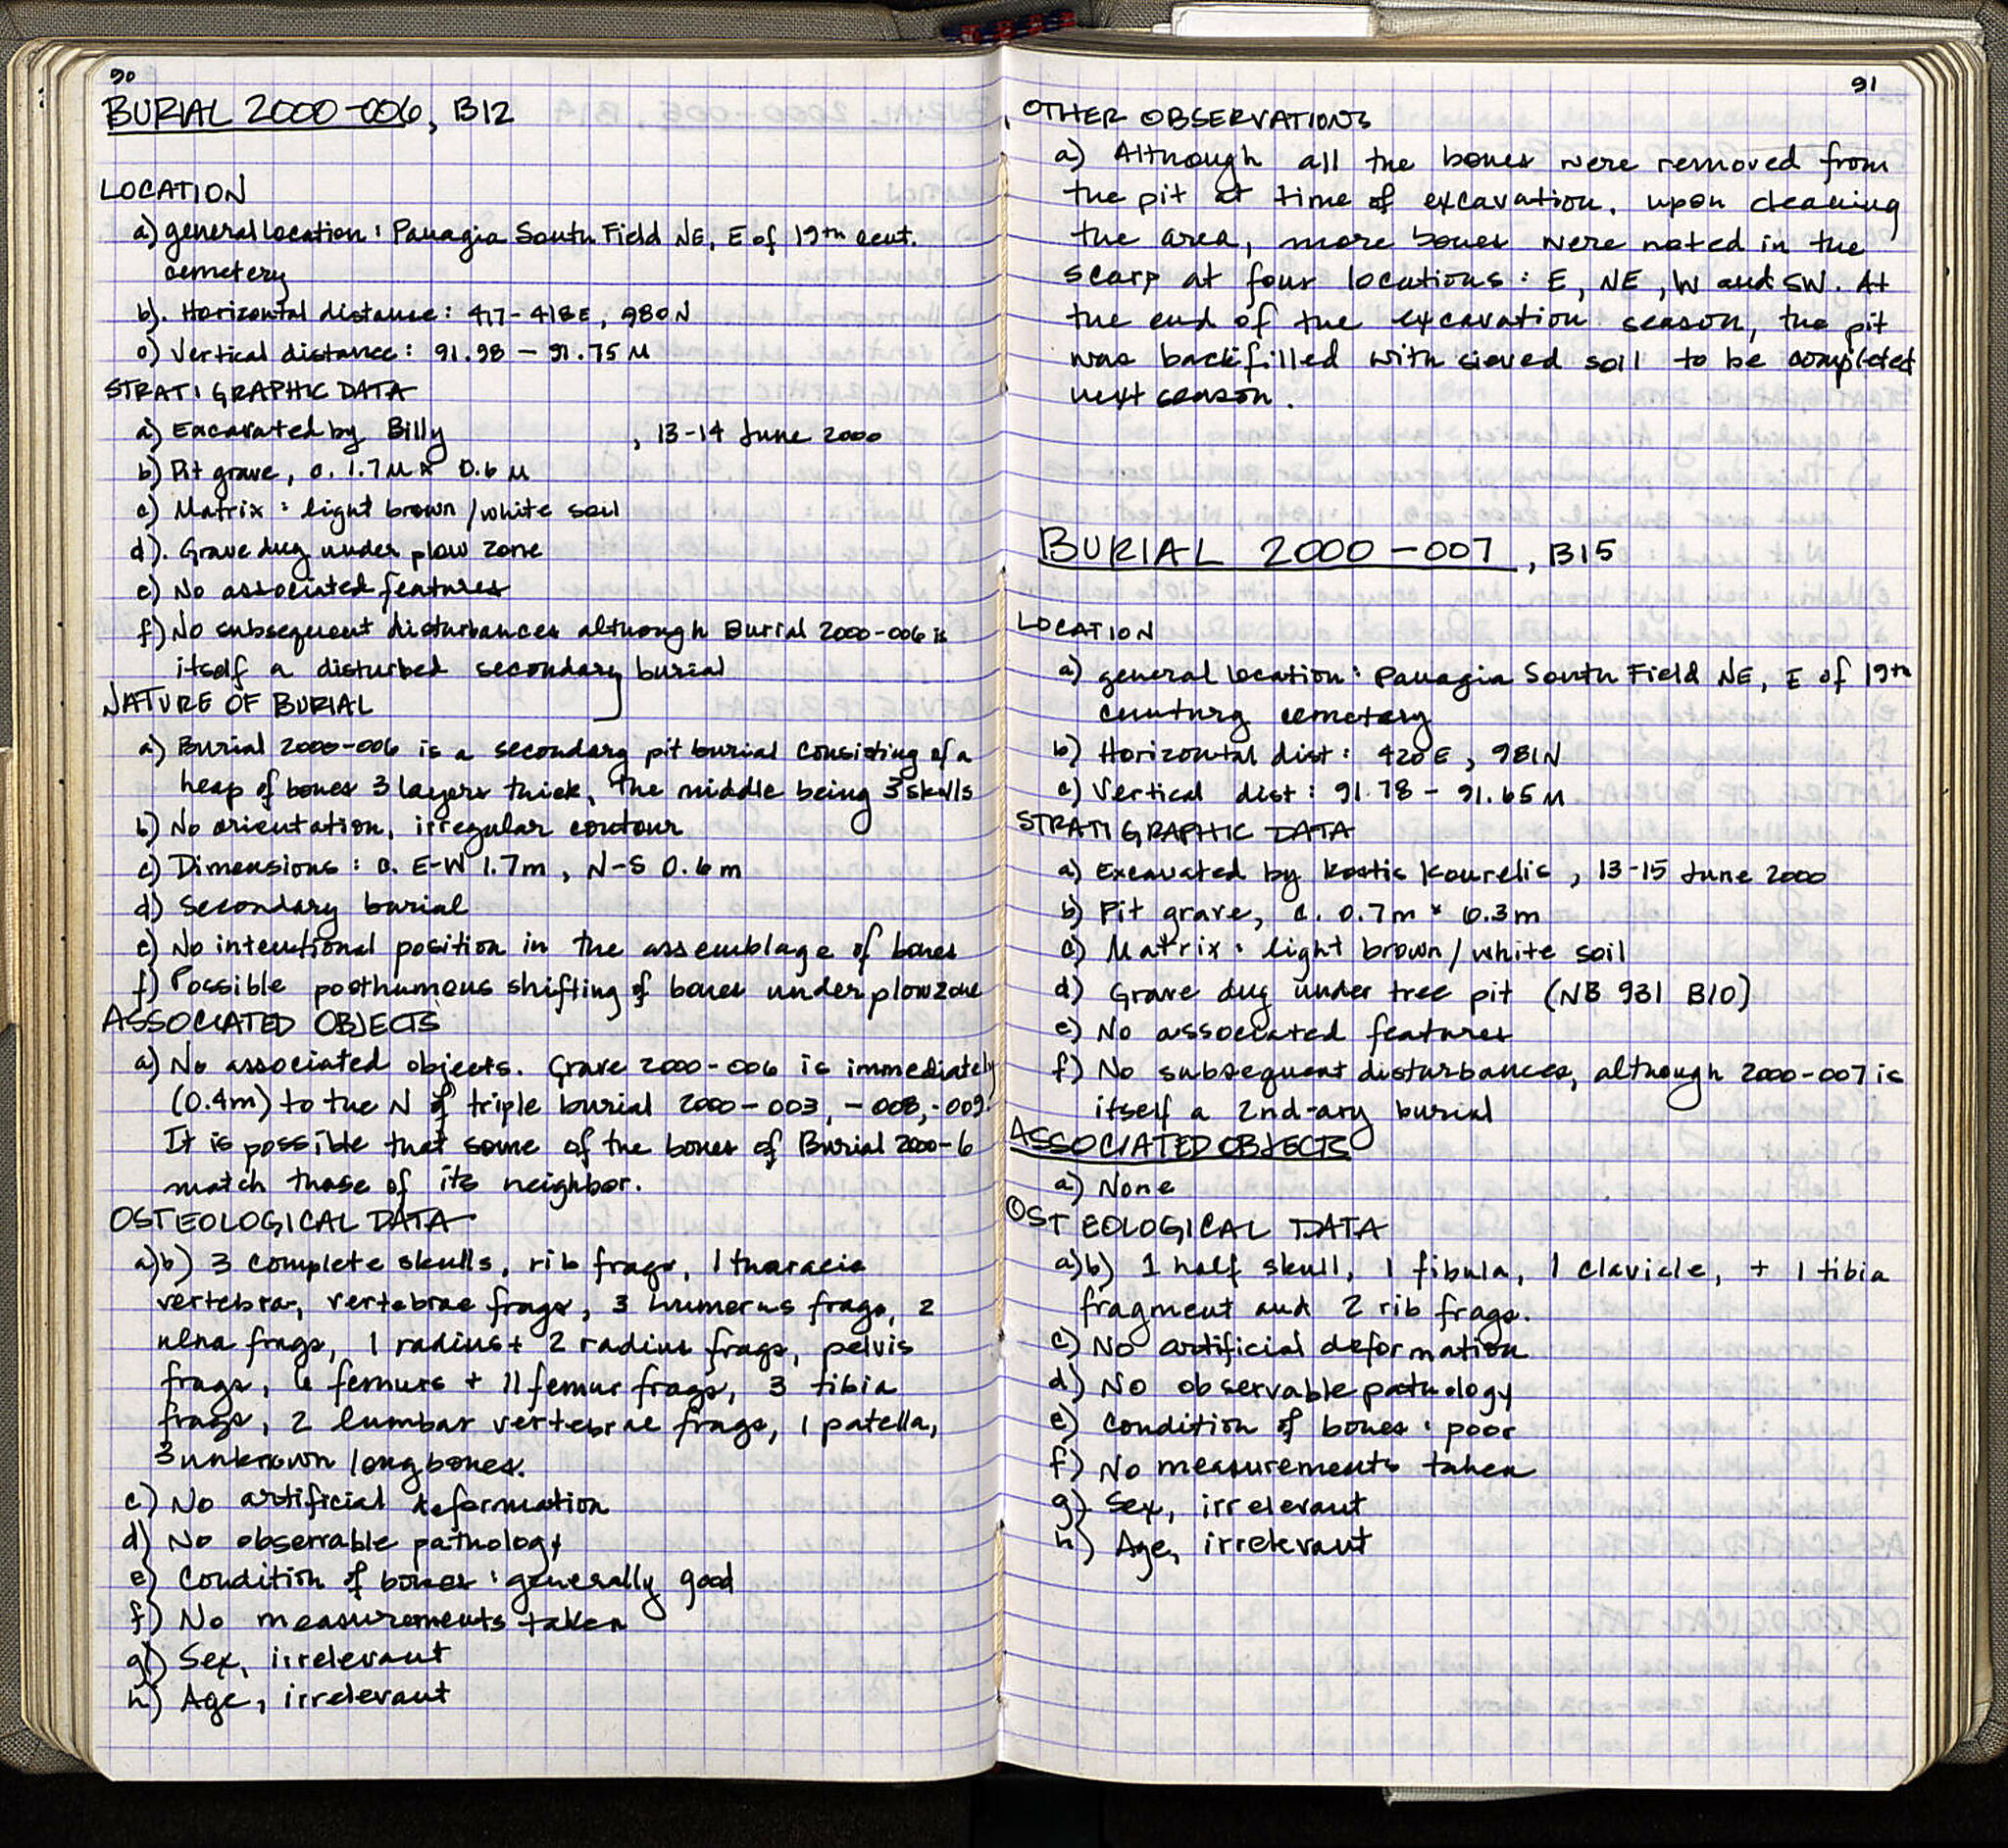 90
BURIAL 2000-006, B12
LOCATION
a) general location: Panagia South Field NE, E of 19th cent.
cemetery
b). Horizontal distance: 417-418E, 980N
c) Vertical distance: 91.98 - 91.75 M
STRATIGRAPHIC DATA
a) Excavated by Billy , 13-14 June 2000
b) Pit grave, c. 1.7M x 0.6 M
c) Matrix: light brown/white soil
d). Grave dug under plow zone
e) No associated features
f) No subsequent disturbances although Burial 2000-006 is
itself a disturbed secondary burial
NATURE OF BURIAL
a) Burial 2000-006 is a secondary pit burial consisting of a
heap of bones 3 layers thick, the middle being 3 skulls
b) No orientation, irregular contour
c) Dimensions: c. E-W 1.7m, N-S 0.6m
d) Secondary burial
e) No intentional position in the assemblage of bones
f) Possible posthumous shifting of bones under plowzone
ASSOCIATED OBJECTS
a) No associated objects. Grave 2000-006 is immediately
(0.4m) to the N of triple burial 2000-003, -008, -009.
It is possible that some of the bones of Burial 2000-6
match those of its neighbor.
OSTEOLOGICAL DATA
a)b) 3 complete skulls, rib frags, 1 thoracic
vertebra, vertebrae frags, 3 humerus frags, 2
ulna frags, 1 radius + 2 radius frags, pelvis
frags, 6 femurs + 11 femur frags, 3 tibia
frags, 2 lumbar vertebrae frags, 1 patella,
3 unknown longbones.
c) No artificial deformation
d) No observable pathology
e) Condition of bones: generally good
f) No measurements taken
g) Sex, irrelevant
h) Age, irrelevant
91
OTHER OBSERVATIONS
a) Although all the bones were removed from
the pit at time of excavation, upon cleaning
the area, more bones were noted in the
scarp at four locations: E, NE, W and SW. At
the end of the excavation season, the pit
was backfilled with sieved soil to be completed
next season.
BURIAL 2000-007, B15
LOCATION
a) general location: Panagia South Field NE, E of 19th
century cemetery
b) Horizontal dist: 420E, 981N
c) Vertical dist: 91.78 - 91.65M
STRATIGRAPHIC DATA
a) Excavated by Kostis Kourelis, 13-15 June 2000
b) Pit grave, c. 0.7m x 0.3m
c) Matrix: light brown/white soil
d) Grave dug under tree pit (NB 931 B10)
e) No associated features
f) No subsequent disturbances, although 2000-007 is
itself a 2nd-ary burial
ASSOCIATED OBJECTS
a) None
OSTEOLOGICAL DATA
a)b) 1 half skull, 1 fibula, 1 clavicle, + 1 tibia
fragment and 2 rib frags.
c) No artificial deformation
d) No observable pathology
e) Condition of bones: poor
f) No measurements taken
g) Sex, irrelevant
h) Age, irrelevant